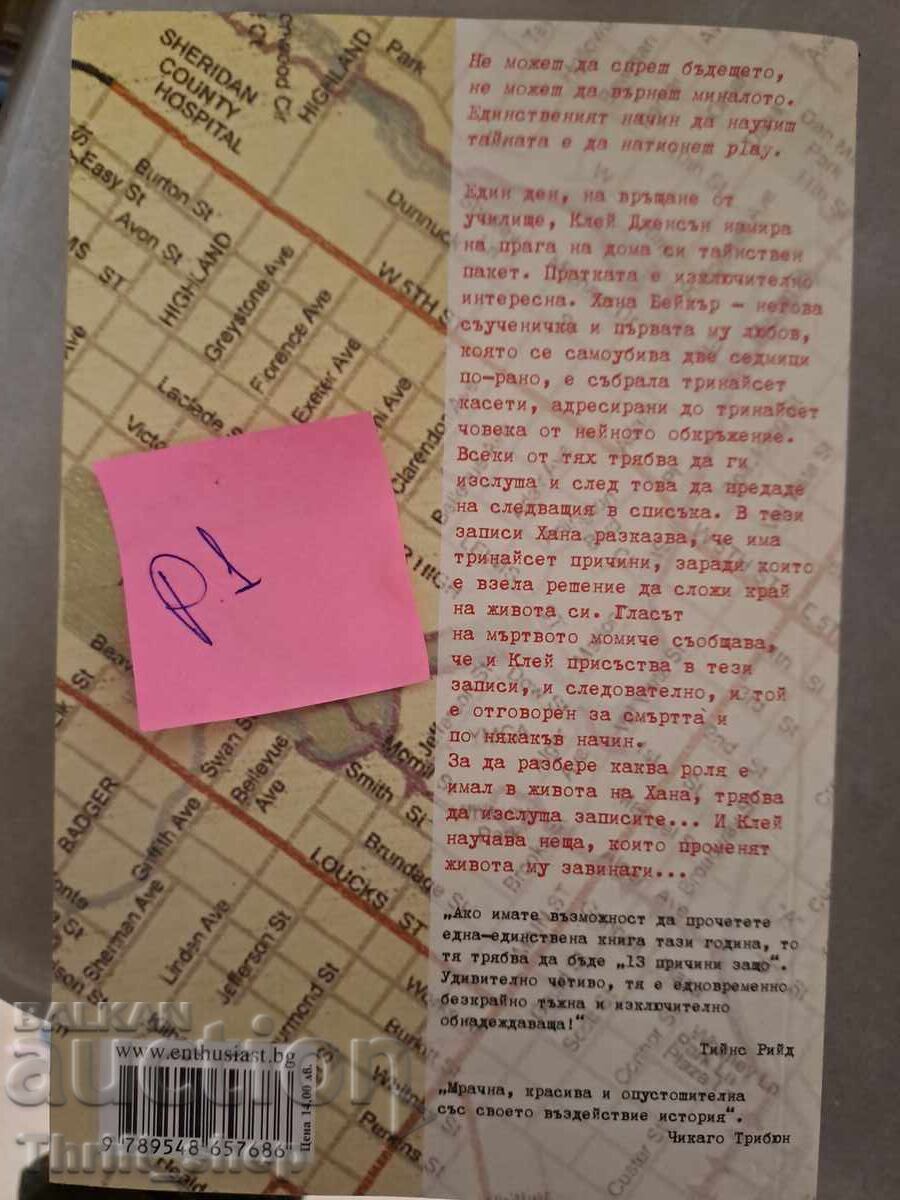 Не можеш да спреш бъдещето,
не можеш да върнеш миналото.
Единственият начин да научиш
тайната е да натиснеш play.
Един ден, на връщане от
училище, Клей Дженсън намира
на прага на дома си тайнствен
пакет. Пратката е изключително
интересна. Хана Бейкър – негова
съученичка и първата му любов,
която се самоубива две седмици
по-рано, е събрала тринайсет
касети, адресирани до тринайсет
човека от нейното обкръжение.
Всеки от тях трябва да ги
изслуша и след това да предаде
на следващия в списъка. В тези
записи Хана разказва, че има
тринайсет причини, заради които
е взела решение да сложи край
на живота си. Гласът
на мъртвото момиче съобщава,
че и Клей присъства в тези
записи, и следователно, и той
е отговорен за смъртта и
по някакъв начин.
За да разбере каква роля е
имал в живота на Хана, трябва
да изслуша записите... И Клей
научава неща, които променят
живота му завинаги...
„Ако имате възможност да прочетете
една-единствена книга тази година, то
тя трябва да бъде „13 причини защо“.
Удивително четиво, тя е едновременно
безкрайно тъжна и изключително
обнадеждаваща!“
Тийнс Рийд
„Мрачна, красива и опустошителна
със своето въздействие история“.
Чикаго Трибюн
SHERIDAN
COUNTY
HOSPITAL
HIGHLAND
Park
Burton St
Easy St
Avon St
HIGHLAND
Greystone Ave
Florence Ave
Exeter Ave
W. 5TH S
Laclade
Clarendon
P1
Swan St
Bellevue
Ave
Smith St
BADGER
Griffith Ave
LOUCKS ST
Brundage St
Sherman Ave
Linden Ave
Jefferson St
Perkins
BALKAN
auction
www.enthusiast.bg
9 789548 657686
Цена 14,00 лв.